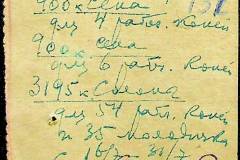 900 к Сена 131
для 4 рабоч. Коней
900 к сена
для 6 раб. Коней
3195 к Соломы
для 54 раб. Коней
и 35 молодняка
16/7 31/7